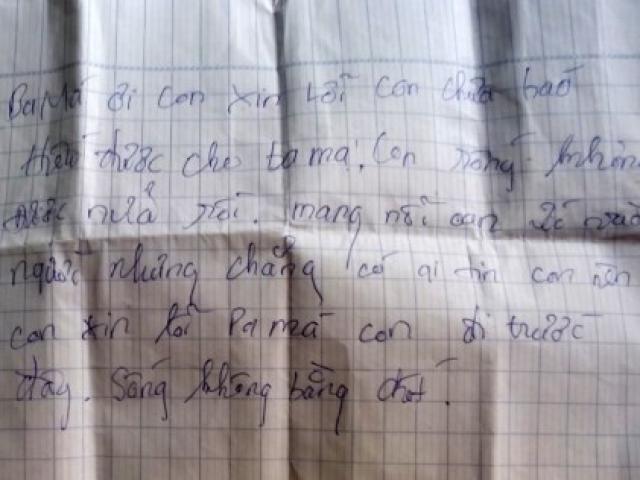 Ba Má ơi con xin lỗi con chưa báo
hiếu được cho ba má. Con sống không
được nữa rồi. mang nỗi oan ức vào
người nhưng chẳng có ai tin con nên
con xin lỗi Pa má con đi trước
đây. Sống không bằng chết.